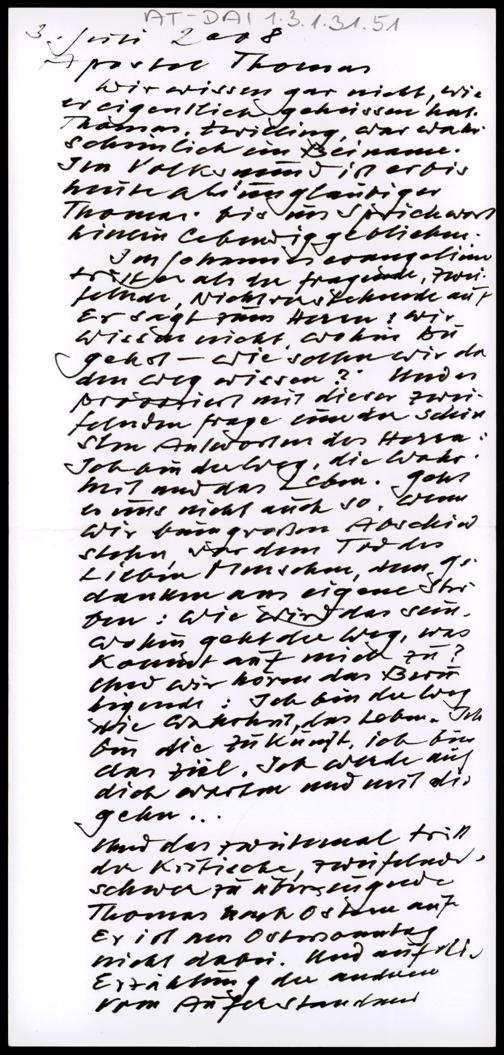 AT-DAI 1.3.1.31.51
3. Juli 2008
Apostel Thomas
Wir wissen gar nicht, wie
er eigentlich geheissen hat.
Thomas, Zwilling, war wahr
scheinlich ein Beiname.
Im Volksmund ist er bis
heute als ungläubiger
Thomas bis ins Sprichwort
hinein lebendig geblieben.
Im Johannesevangelium
tritt er als der fragende, zwei-
felnde, Nichtverstehende auf
Er sagt zum Herrn: Wir
wissen nicht, wohin Du
gehst – wie sollen wir da
den Weg wissen? Und er
provoziert mit dieser zwei-
felnden Frage eine der schön
sten Antworten des Herrn:
Ich bin der Weg, die Wahr-
heit und das Leben. Geht
es uns nicht auch so. Wenn
wir beim großen Abschied
stehen, vor dem Tod des
Lieben Menschen, dem Ge-
danken ans eigene Ster
ben: Wie wird das sein.
Wohin geht der Weg, was
kommt auf mich zu?
Und wir hören das Beru
higende: Ich bin der Weg
die Wahrheit, das Leben. Ich
bin die Zukunft, ich bin
das Ziel. Ich werde auf
dich warten und mit dir
gehn ...
Und das zweitemal tritt
der Kritische, zweifelnde,
schwer zu überzeugende
Thomas nach Ostern auf
Er ist am Ostersonntag
nicht dabei. Und auf die
Erzählung der anderen
vom Auferstandenen